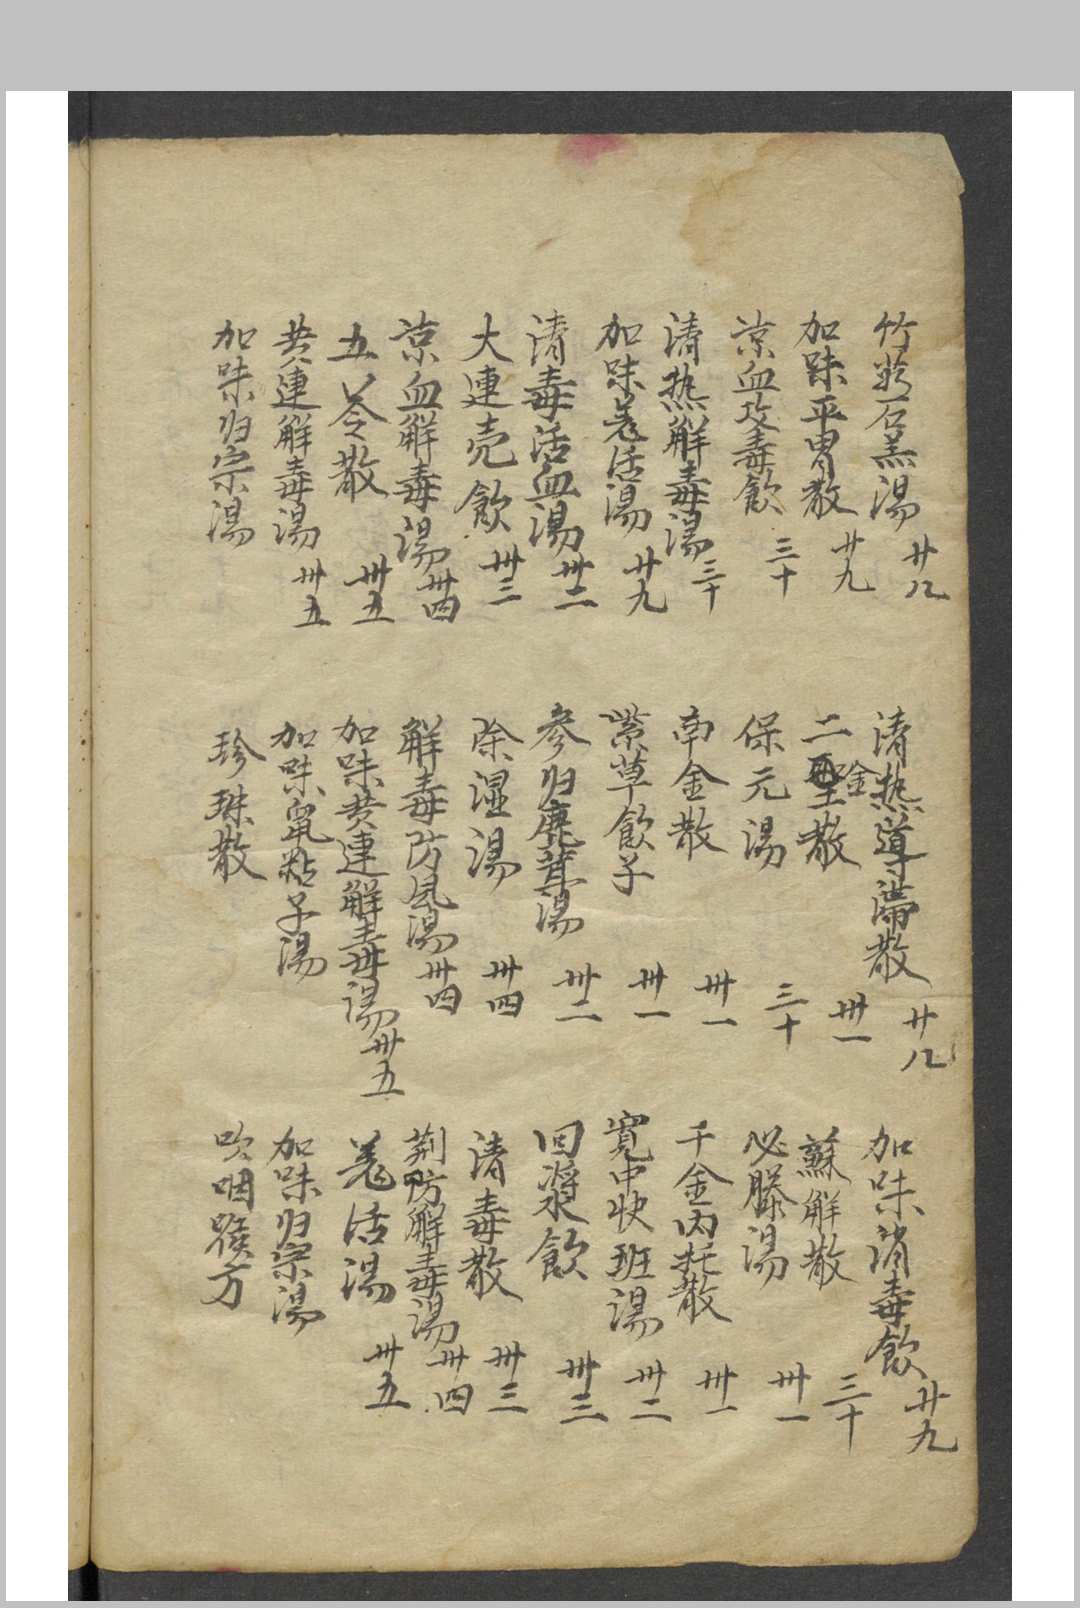 竹葉石羔湯 廿八
清热導滯散 廿八
加味消毒飲 廿九
加味平胃散 廿九
二聖散 卅一
金
蘇解散 三十
涼血攻毒飲 三十
保元湯 三十
必勝湯 卅一
清热解毒湯 三十
南金散 卅一
千金内托散 卅一
加味羌活湯 廿九
紫草飲子 卅一
寬中快班湯 卅二
清毒活血湯 卅二
参归鹿茸湯 卅二
回漿飲 卅三
大連壳飲 卅三
除湿湯 卅四
清毒散 卅三
涼血解毒湯 卅四
解毒防风湯 卅四
荆防解毒湯 卅四
五苓散 卅五
加味黄連解毒湯 卅五
羌活湯 卅五
黄連解毒湯 卅五
加味鼠粘子湯
加味归宗湯
加味归宗湯
珍珠散
吹咽喉方